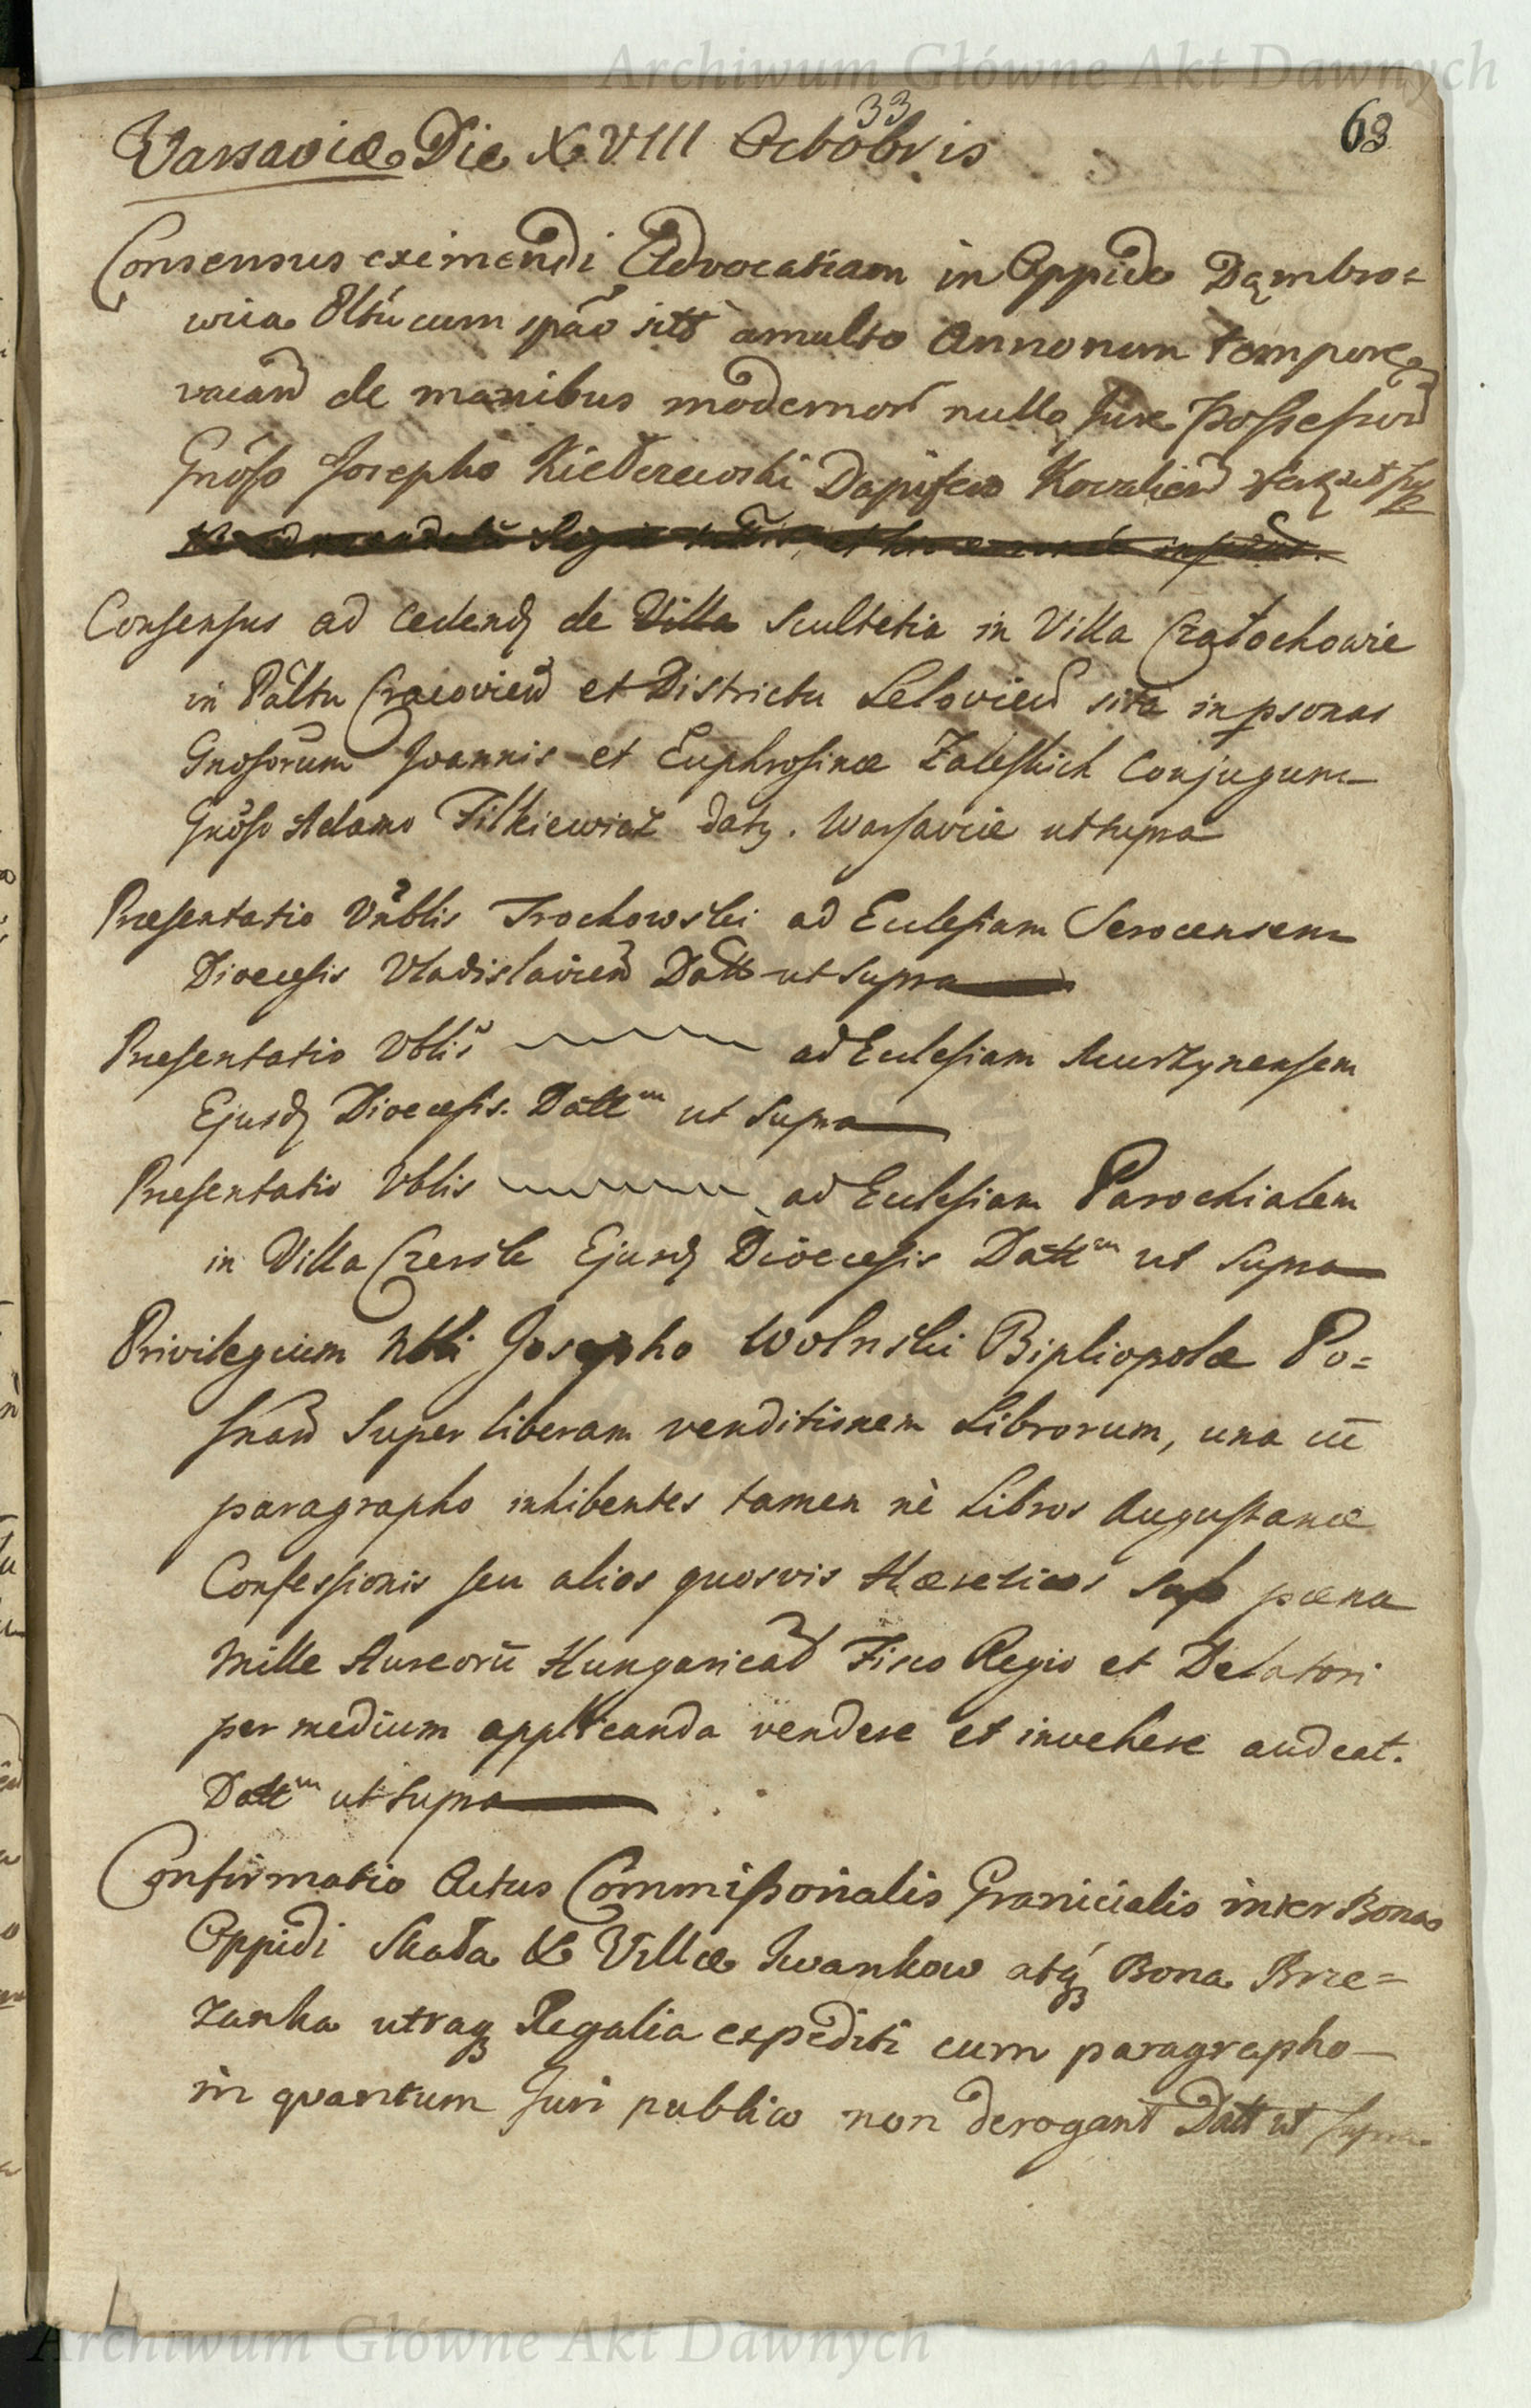 Archiwum Główne Akt Dawnych
33
63
Varsaviæ Die XVIII Octobris
Consensus eximendi Advocatiam in Oppido Dąmbro=
wica cum spão sitð a multo Annorum tempore
vacañ de manibus modernor nullo Jure Possessorũ
Gnõso Josepho Kiełczewski Dapifero Kovalień ut supra
Consensus ad cedendꝫ de Villa Scultetia in Villa Czałochowie
in Pältu Cracovień et Districtu Leloviensi sita in psonas
Gnosorum Joannis et Euphrosinæ Zaleskich Conjugum
Gnõso Adamo Filkiewicz datꝫ. Warsaviæ ut supra
Præsentatio Vnblis Trochowski ad Ecclesiam Serocensem
Dioecesis Vladislavień Datt ut supra
Præsentatio Vblis ad Ecclesiam Murzynensem
Ejusdꝫ Dioecesis. Datt^m ut supra
Præsentatio Vblis ad Ecclesiam Parochialem
in Villa Czersk Ejusdꝫ Dioecesis Datt^m ut supra
Privilegium Nbli Josepho Wolnski Bipliopolæ Po=
snañ super liberam venditionem Librorum, una cũ
paragrapho inhibentes tamen nè Libros Augustanæ
Confessionis seu alios quosvis Hæreticos sub pæna
Mille Aureorũ Hungaricał Fisco Regio et Delatori
per medium applicanda vendere et invehere audeat.
Datt^m ut supra
Confirmatio Actus Commissionalis Granicialis inter Bona
Oppidi Skała & Villæ Iwankow atqꝫ Bona Brze=
zanka utraqꝫ Regalia expediti cum paragrapho
in quantum Juri publico non derogant Datt ut supra
Archiwum Główne Akt Dawnych